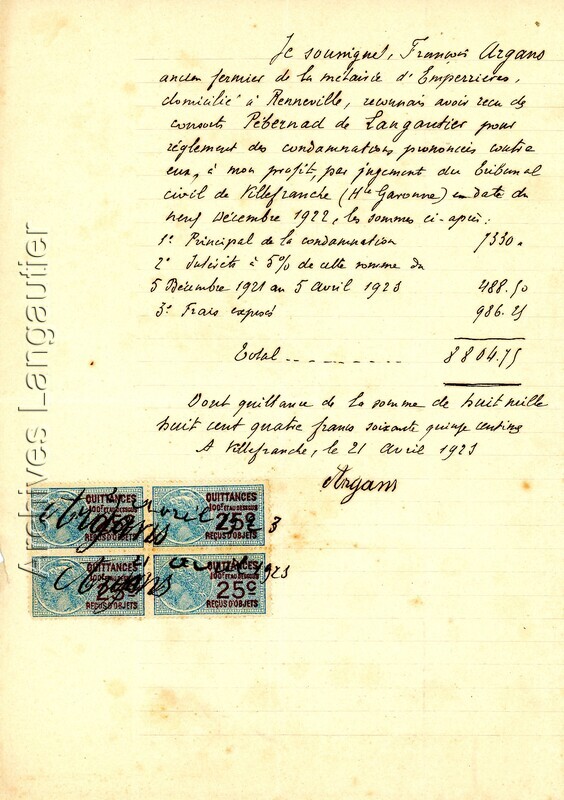 Je soussigné, François Argans
ancien fermier de la métairie d'Emperrières,
domicilié à Renneville, reconnais avoir reçu des
consorts Pébernad de Langautier pour
règlement des condamnations prononcées contre
eux, à mon profit, par jugement du Tribunal
civil de Villefranche (Hte Garonne) en date du
neuf Décembre 1922, les sommes ci-après :
1° Principal de la condamnation 7330 "
2° Intérêts à 5% de cette somme du
5 Décembre 1921 au 5 Avril 1923 488.50
3° Frais exposés 986.25
Total ......... 8804.75
Dont quittance de la somme de huit mille
huit cent quatre francs soixante quinze centimes
A Villefranche, le 21 Avril 1923
Argans
QUITTANCES
100F ET AU DESSUS
RECUS D'OBJETS
QUITTANCES
100F ET AU DESSUS
25c
RECUS D'OBJETS
QUITTANCES
100F ET AU DESSUS
25c
RECUS D'OBJETS
QUITTANCES
100F ET AU DESSUS
25c
RECUS D'OBJETS
Argans
Argans
1923
Archives Langautier